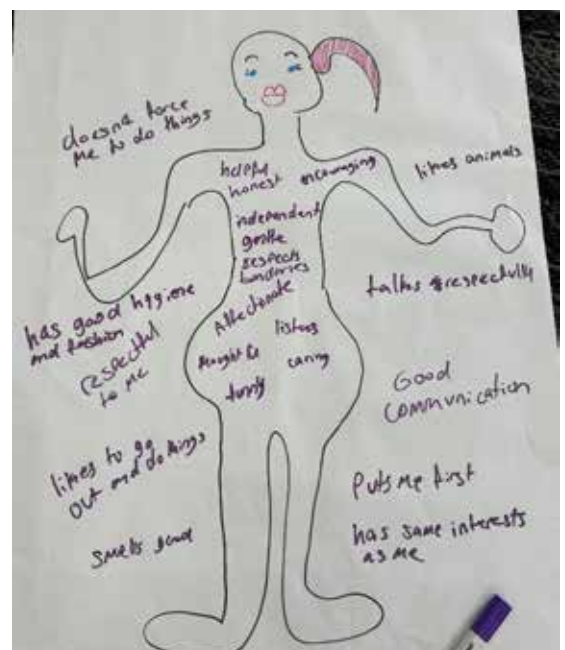 doesn't force
me to do things
helpful
honest encouraging
likes animals
independent
gentle
respects
boundaries
Affectionate
talks respectfully
has good hygiene
and fashion
respectful
to me
listens
thoughtful caring
funny
Good
Communication
likes to go
out and do things
Puts me first
smells good
has same interests
as me